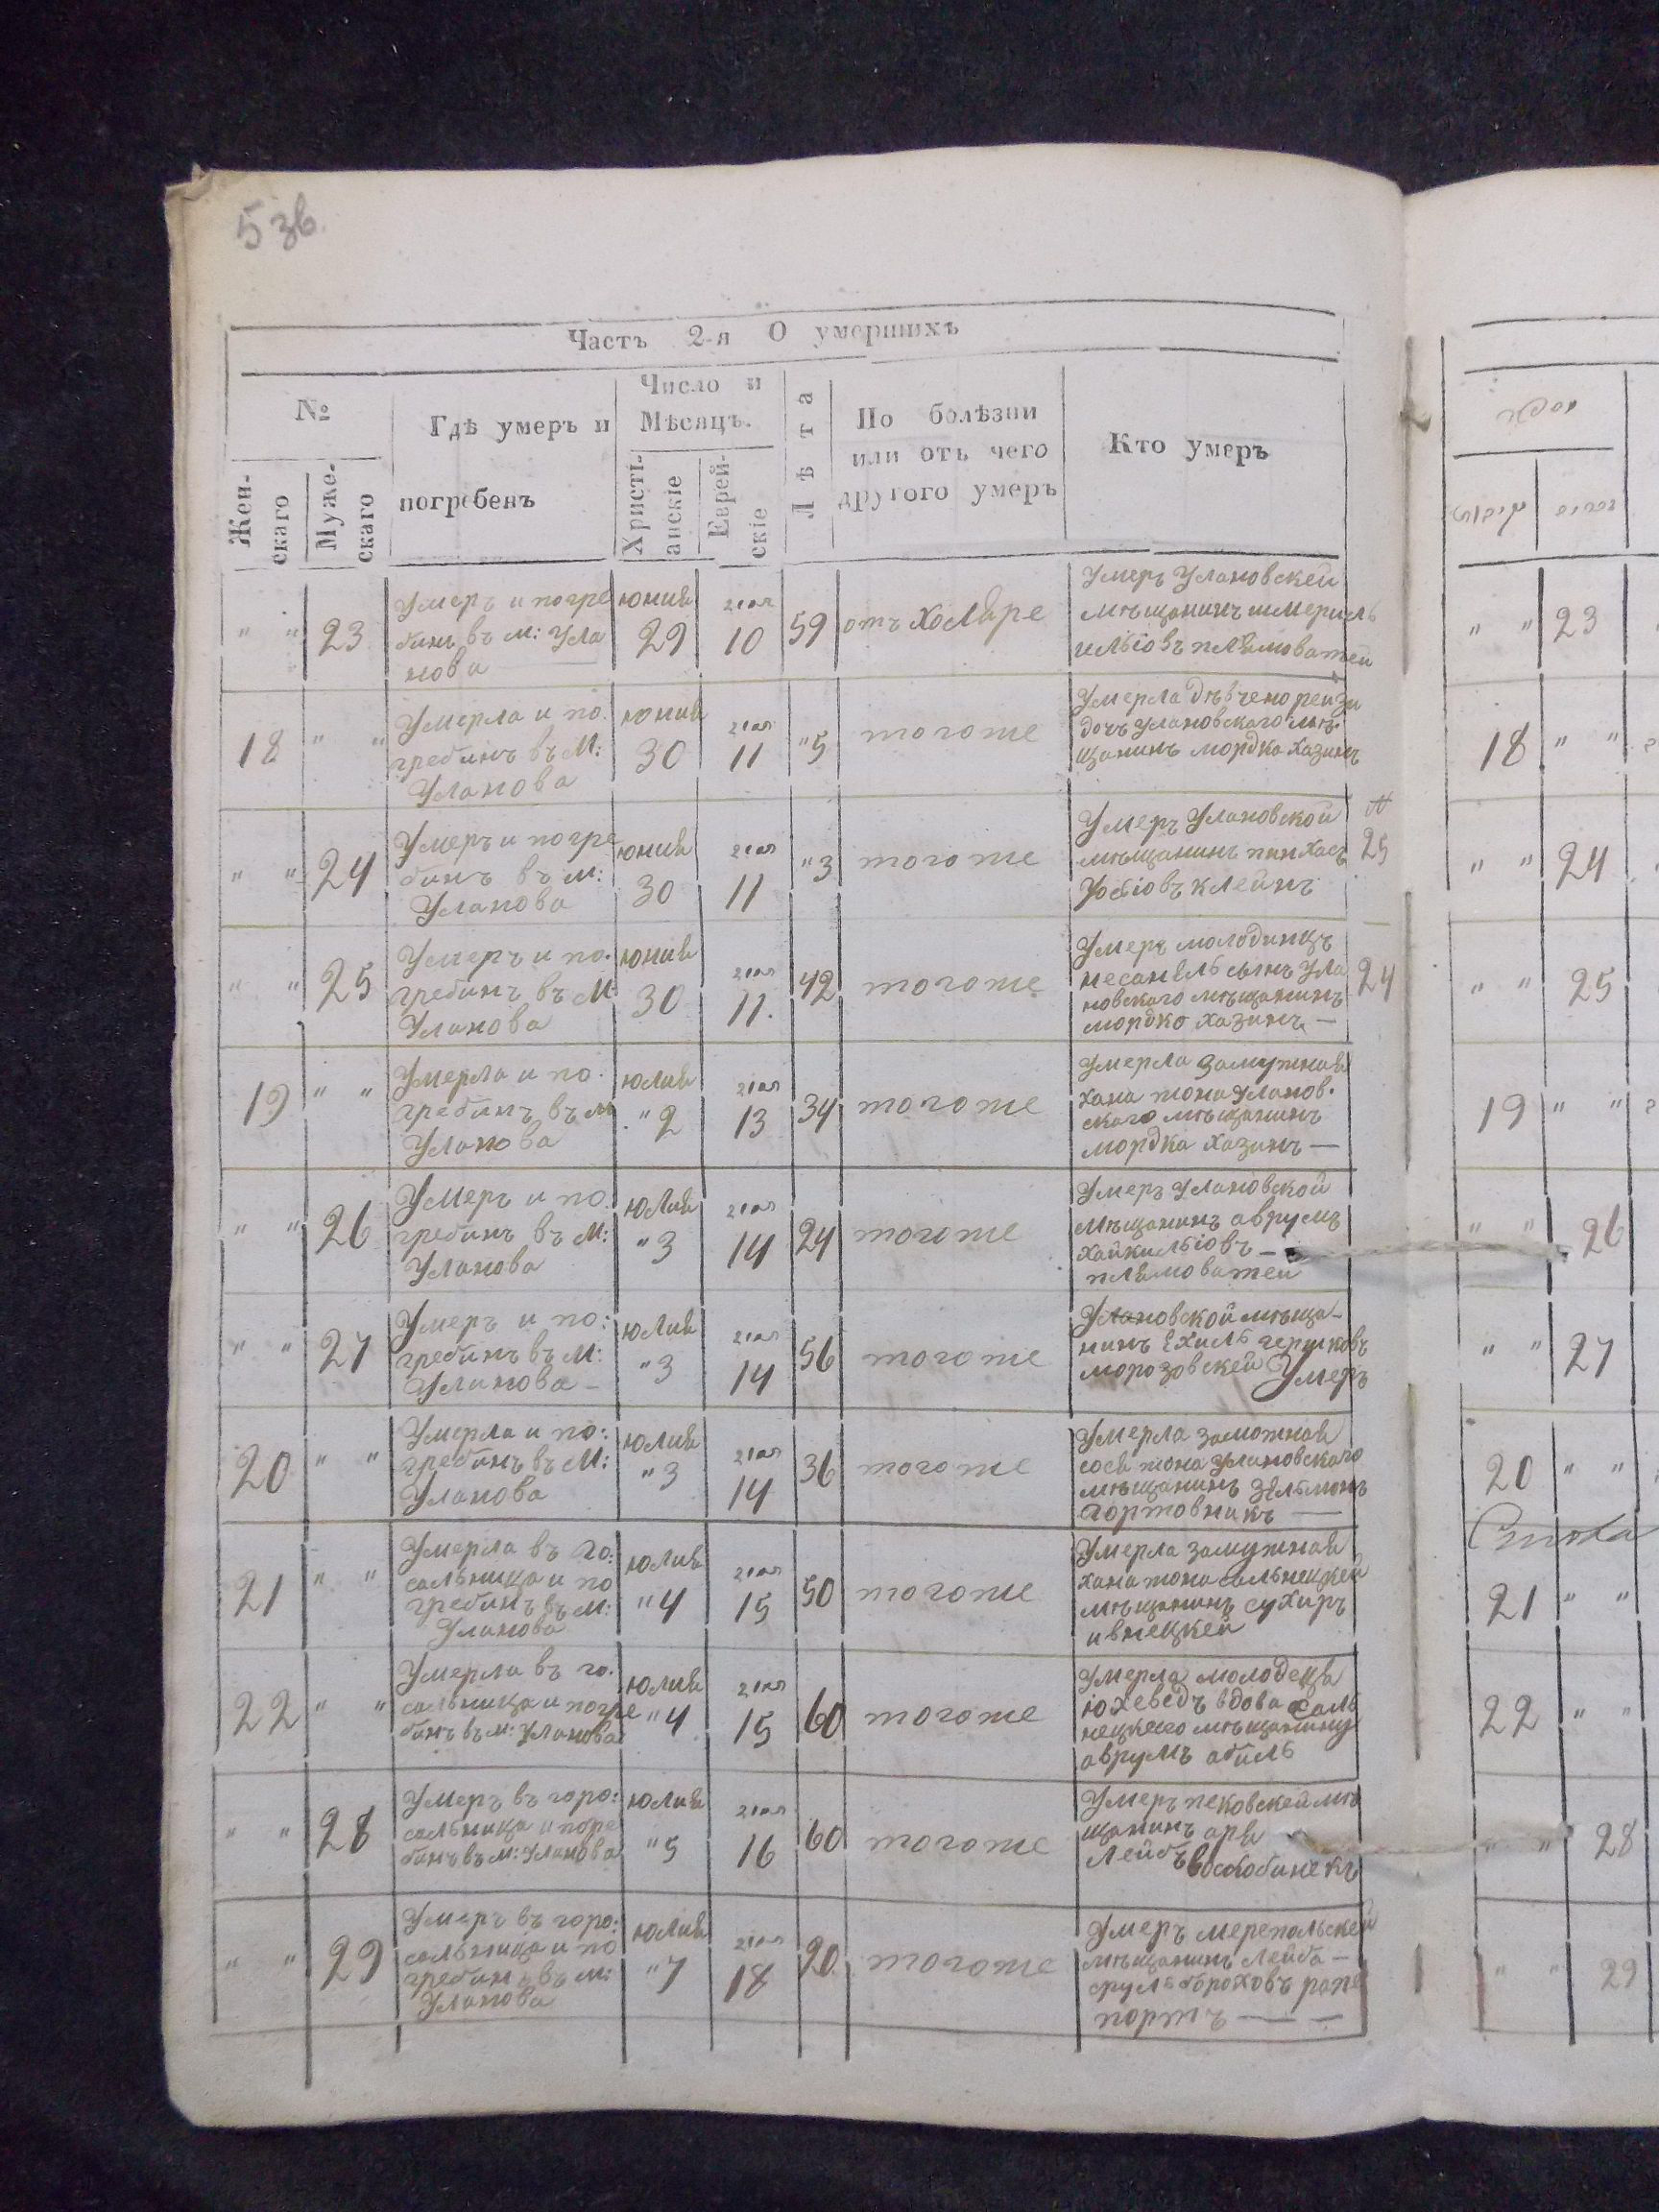 5 зв.
Часть 2-я О умершихъ
№
Жен-
скаго
Муже-
скаго
Гдѣ умеръ и
погребенъ
Число и
Мѣсяцъ.
Христі-
анскіе
Еврей-
скіе
Лѣта
По болѣзни
или отъ чего
другого умеръ
Кто умеръ
" " 23
Умеръ и погре
бинъ въ м: Ула
нова
юния
29
10
59
отъ холяре
Умеръ Улановскей
мѣщанинъ шмериль
илькіовъ плямоватей
18 " "
Умерла и по.
гребинъ въ М:
Уланова
юния
30
11
"5
тогоже
Умерла дѣвчено рейзи
дочъ улановскаго мѣ.
щанинъ мордка хазинъ
" " 24
Умеръ и погре
бинъ въ м:
Уланова
юния
30
11
"3
тогоже
Умеръ Улановской
мѣщанинъ пинхасъ
клейнъ
25
" " 25
Умеръ и по.
гребинъ въ М
Уланова
юния
30
11.
42
тогоже
Умеръ молодинцъ
несанель сынъ ула
новскаго мѣщанинъ
мордко хазинъ —
24
19 " "
Умерла и по.
гребинъ въ м
Уланова
юлия
"2
13
34
тогоже
Умерла замужная
хана жона уланов.
скаго мѣщанинъ
мордка хазинъ —
" " 26
Умеръ и по.
гребинъ въ М:
Уланова
юлия
"3
14
24
тогоже
Умеръ улановской
мѣщанинъ аврумъ
хайкильіовъ —
плямоватей
" " 27
Умеръ и по:
гребинъ въ М:
Уланова —
юлия
"3
14
56
тогоже
Улановской мѣща-
нинъ ехиль гершковъ
морозовскей Умеръ
20 " "
Умерла и по:
гребинъ въ М:
Уланова
юлия
"3
14
36
тогоже
Умерла заможная
сося жона улановскаго
мѣщанинъ зельмонъ
21 " "
Умерла въ го:
сальница и по
гребинъ въ м:
Уланова
юлия
"4
15
50
тогоже
Умерла замужная
хана жона сальнецкей
мѣщанинъ сухиръ
ивнецкей
22 " "
Умерла въ го.
сальница и погре
бинъ въ м: Уланова
юлия
"4
15
60
тогоже
Умерла молодеця
юхеведъ вдова саль
нецкего мѣщанину
аврумъ абиль
" " 28
Умеръ въ горо:
сальница и погре
бинъ въ м: Уланова
юлия
"5
16
60
тогоже
Умеръ пековскей мѣ
щанинъ аря
Лейбъ
" " 29
Умеръ въ горо:
сальница и по
гребинъ въ м:
Уланова
юлия
"7
18
20
тогоже
Умеръ мерепольскей
мѣщанинъ лейба —
сруль бороховъ рапе
портъ — —
" " 23
18 " "
" " 24
" " 25
19 " "
" " 26
" " 27
20 " "
21 " "
22 " "
" " 28
" " 29